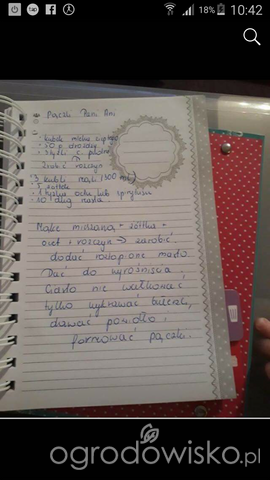 18% 10:42
Pączki Pani Ani
• kubek mleka ciepłego
• 50 g drożdży
• 3 łyżki c. pudru
Zrobić rozczyn
3 kubki mąki (300 ml)
• 5 żółtek
• 1 łyżka octu lub spirytusu
• 10 dkg masła
Mąkę mieszamy + żółtka +
ocet + rozczyn → zarobić,
dodać roztopione masło.
Dać do wyrośnięcia
Ciasto nie wałkować
tylko wykrawać bułeczki,
dawać powidło i
formować pączki.
ogrodowisko.pl